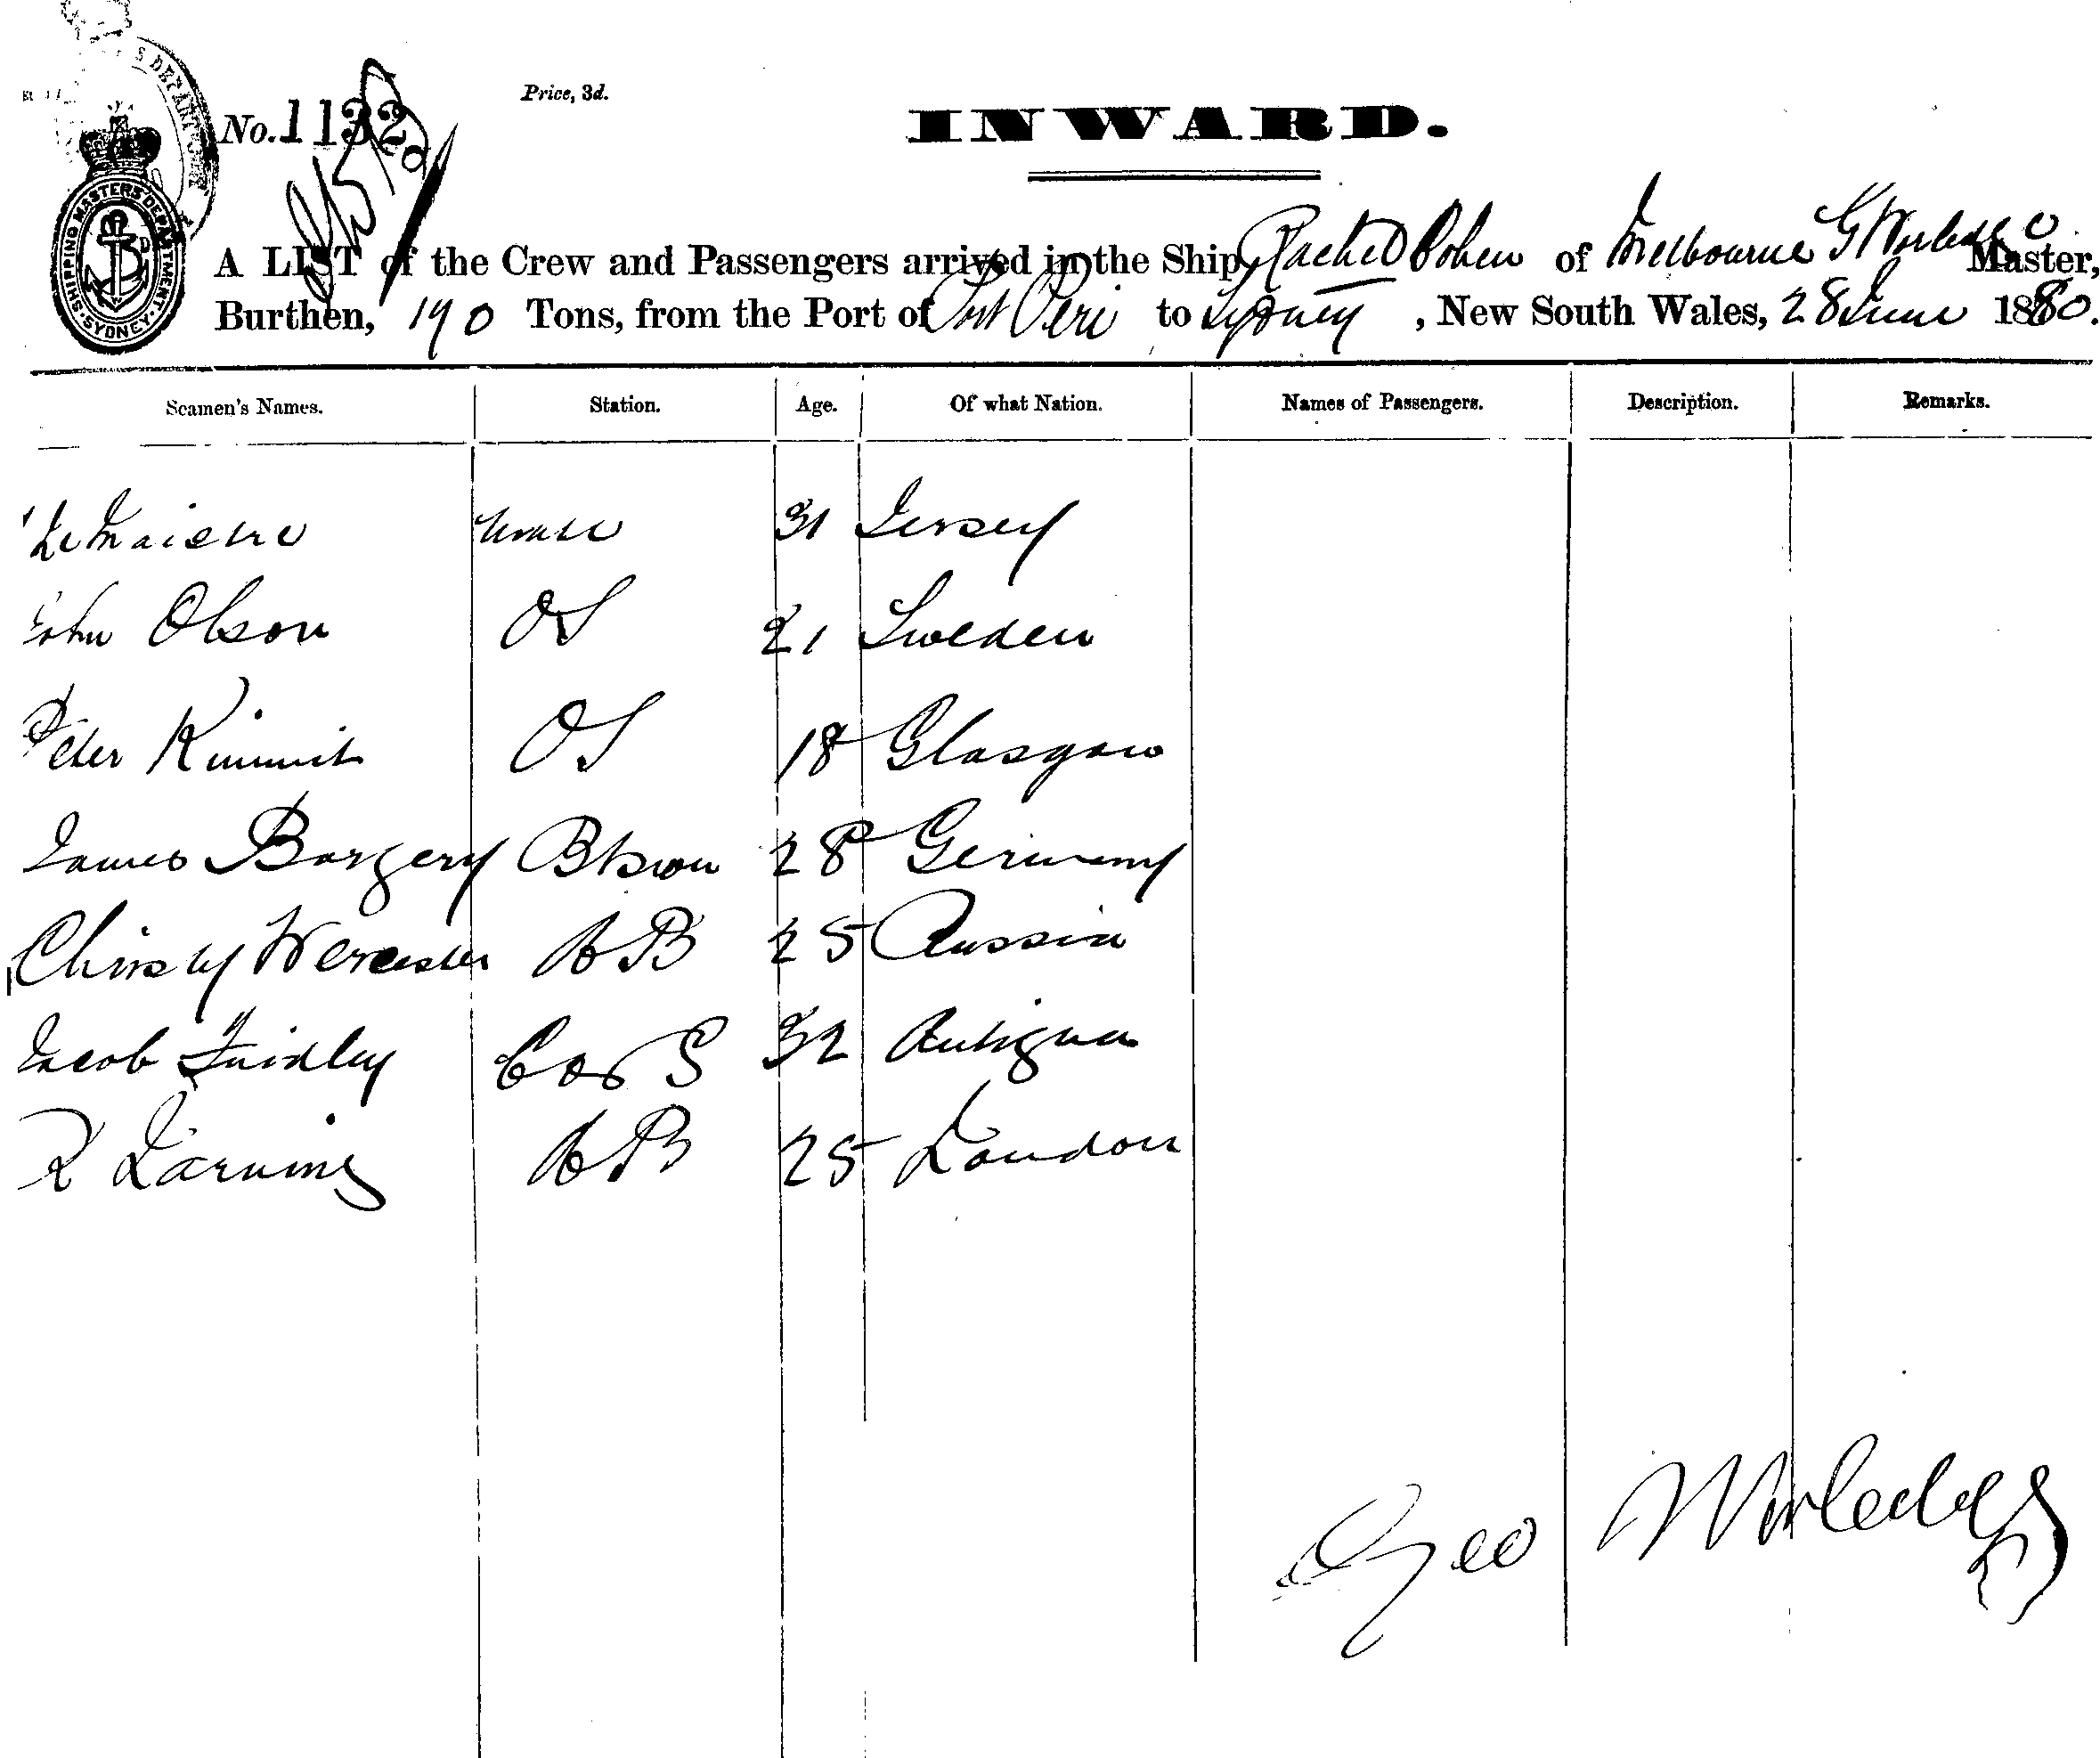 No. 1132
Price, 3d.
INWARD.
SHIPPING MASTERS' DEPARTMENT SYDNEY
A LIST of the Crew and Passengers arrived in the Ship Rachel Cohen of Melbourne G Worledge Master,
Burthen, 190 Tons, from the Port of Port Peri to Sydney, New South Wales, 28 June 1880.
Seamen's Names. Station. Age. Of what Nation. Names of Passengers. Description. Remarks.
Le Maistre Mate 31 Jersey
John Olson OS 21 Sweden
Peter OS 18 Glasgow
James Borgery Btswn 28 Germany
Christy Worcester AB 25 Russia
Jacob Findley Coo S 32 Antigua
R Larning AB 25 London
Geo Worledge